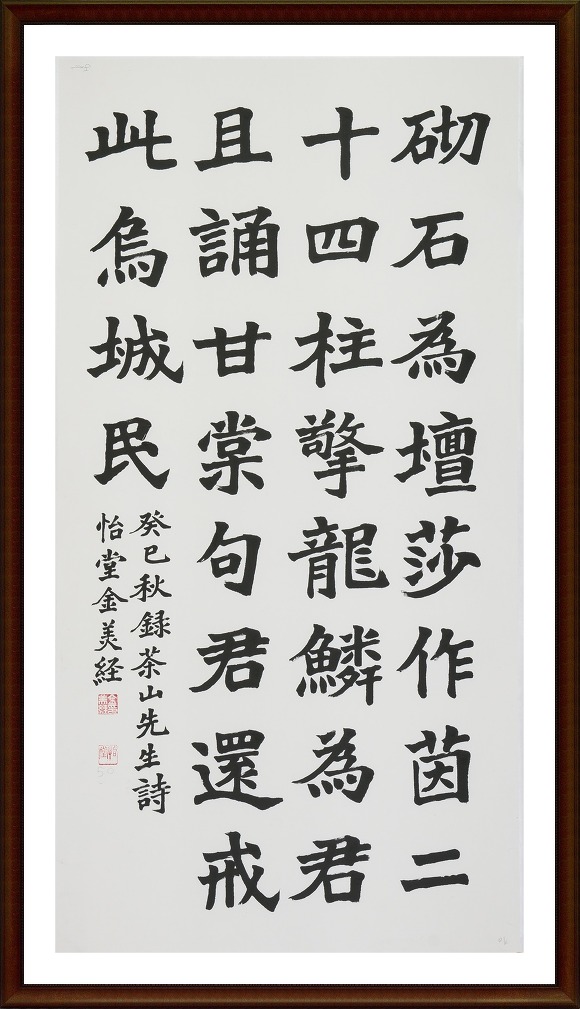 砌石為壇莎作茵二
十四柱擎龍鱗為君
且誦甘棠句君還戒
此烏城民
癸巳秋録茶山先生詩
怡堂金美経